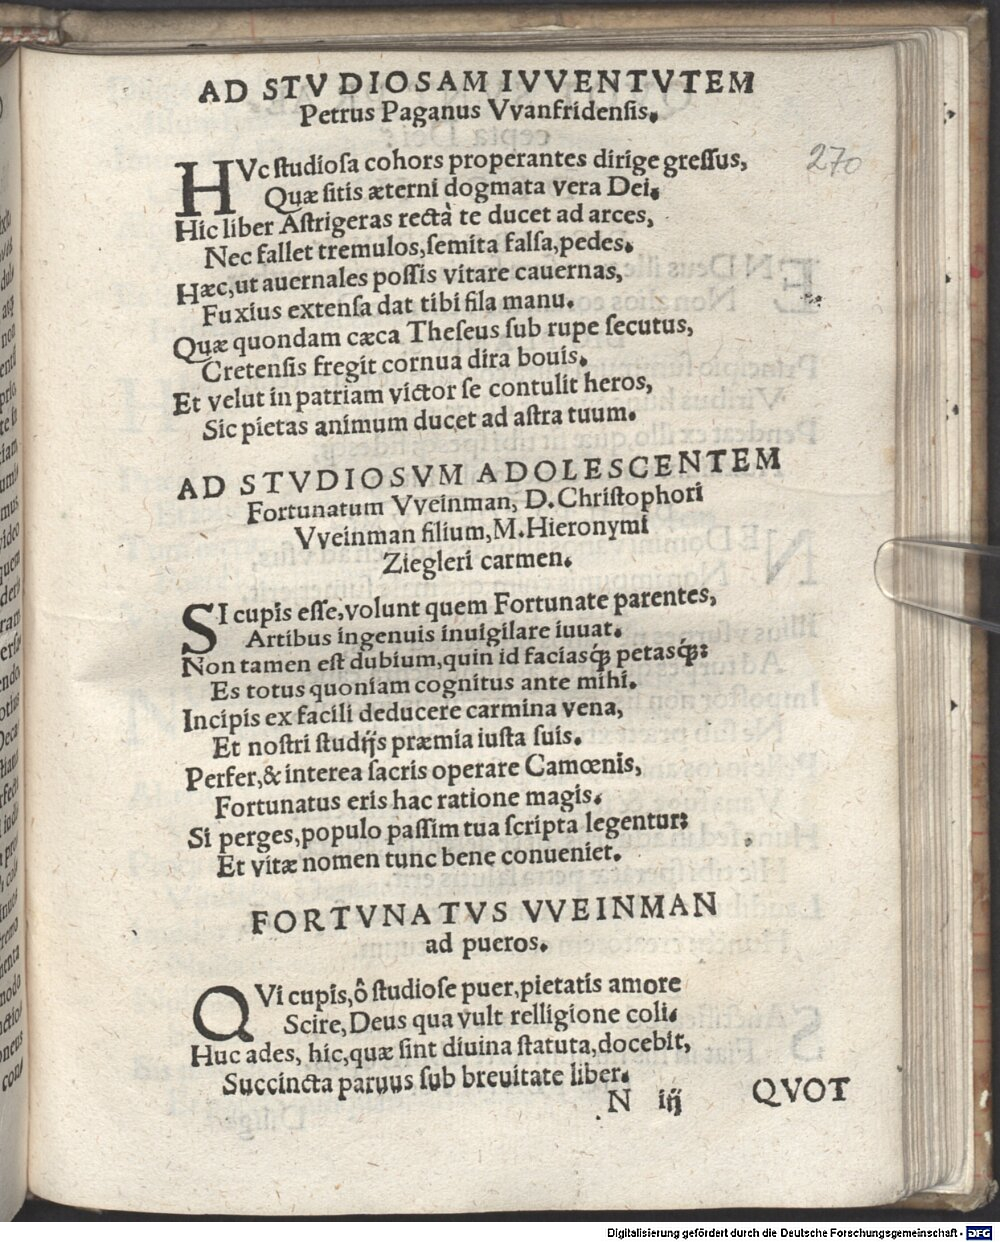 AD STVDIOSAM IVVENTVTEM
Petrus Paganus Vvanfridensis.
270
HVc studiosa cohors properantes dirige gressus,
Quæ sitis æterni dogmata vera Dei.
Hic liber Astrigeras rectà te ducet ad arces,
Nec fallet tremulos, semita falsa, pedes.
Hæc, ut auernales possis vitare cauernas,
Fuxius extensa dat tibi fila manu.
Quæ quondam cæca Theseus sub rupe secutus,
Cretensis fregit cornua dira bouis.
Et velut in patriam victor se contulit heros,
Sic pietas animum ducet ad astra tuum.
AD STVDIOSVM ADOLESCENTEM
Fortunatum Vveinman, D. Christophori
Vveinman filium, M. Hieronymi
Ziegleri carmen.
SI cupis esse, volunt quem Fortunate parentes,
Artibus ingenuis inuigilare iuuat.
Non tamen est dubium, quin id faciasq́; petasq́;:
Es totus quoniam cognitus ante mihi.
Incipis ex facili deducere carmina vena,
Et nostri studijs præmia iusta suis.
Perfer, & interea sacris operare Camœnis,
Fortunatus eris hac ratione magis.
Si perges, populo passim tua scripta legentur:
Et vitæ nomen tunc bene conueniet.
FORTVNATVS VVEINMAN
ad pueros.
QVi cupis, ô studiose puer, pietatis amore
Scire, Deus qua vult relligione coli.
Huc ades, hic, quæ sint diuina statuta, docebit,
Succincta paruus sub breuitate liber.
N iij
QVOT
Digitalisierung gefördert durch die Deutsche Forschungsgemeinschaft - DFG